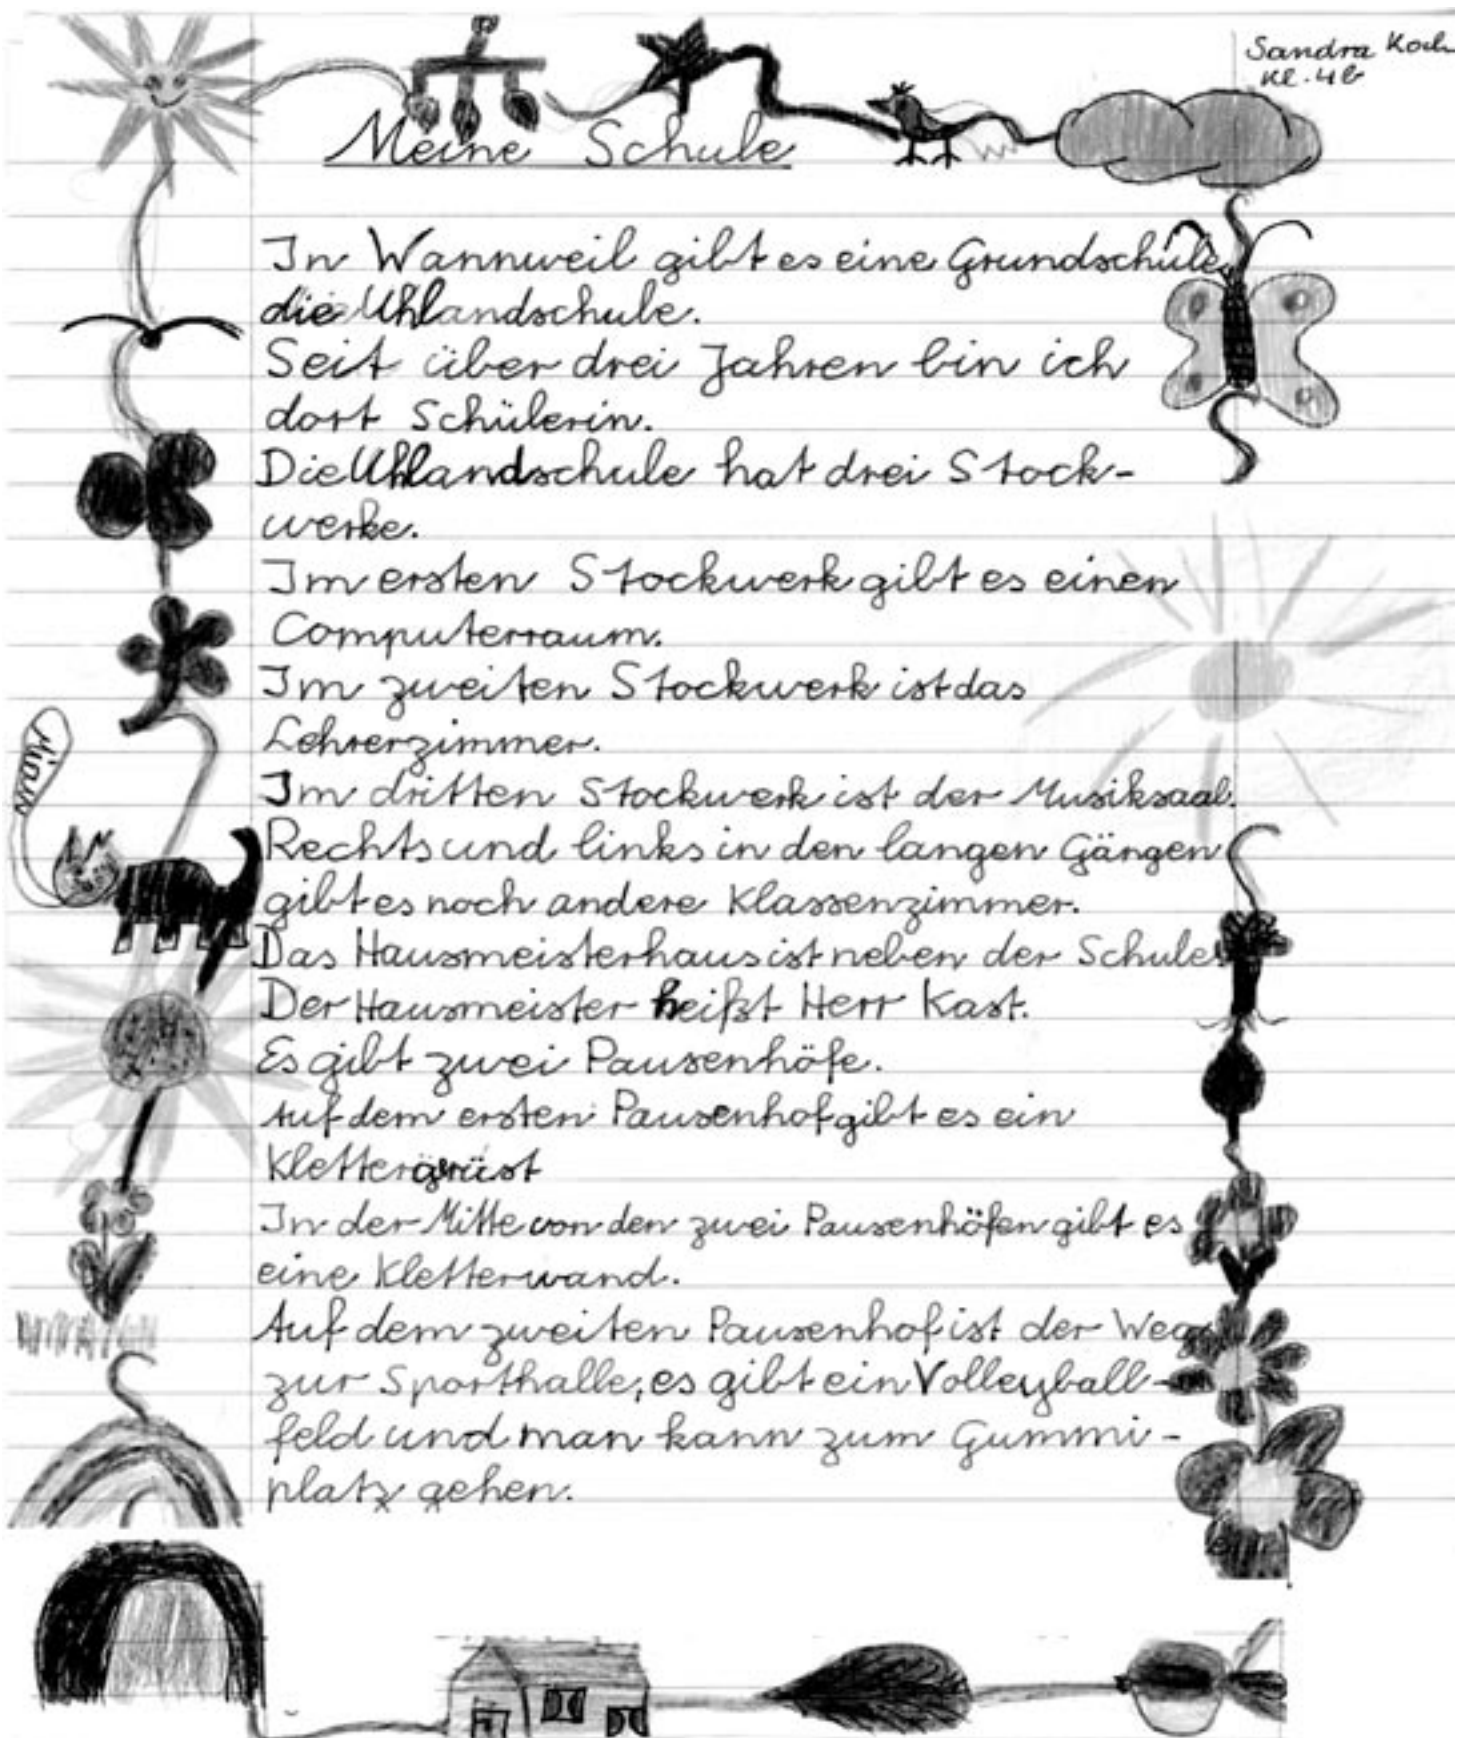 Sandra Koch
Kl. 4b
Meine Schule
In Wannweil gibt es eine Grundschule,
die Uhlandschule.
Seit über drei Jahren bin ich
dort Schülerin.
Die Uhlandschule hat drei Stock-
werke.
Im ersten Stockwerk gibt es einen
Computerraum.
Im zweiten Stockwerk ist das
Lehrerzimmer.
Miauu
Im dritten Stockwerk ist der Musiksaal.
Rechts und links in den langen Gängen
gibt es noch andere Klassenzimmer.
Das Hausmeisterhaus ist neben der Schule.
Der Hausmeister heißt Herr Kast.
Es gibt zwei Pausenhöfe.
Auf dem ersten Pausenhof gibt es ein
Klettergerüst
In der Mitte von den zwei Pausenhöfen gibt es
eine Kletterwand.
Auf dem zweiten Pausenhof ist der Weg
zur Sporthalle, es gibt ein Volleyball-
feld und man kann zum Gummi-
platz gehen.